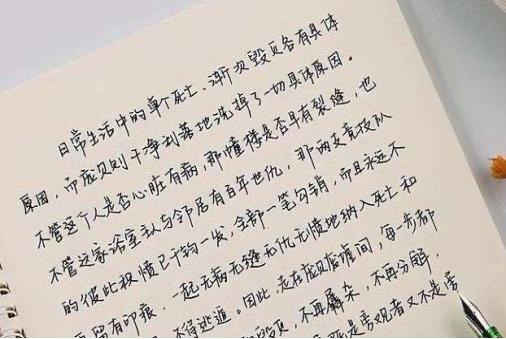 日常生活中的单个死亡、渐次毁灭各有具体
原因，而庞贝则干净利落地洗掉了一切具体原因。
不管这个人是否心脏有病，那幢楼是否早有裂缝，也
不管这家浴室主人与邻居有百年世仇，那两支竞技队
的彼此积愤已千钧一发，全部一笔勾销，而且永远不
留有印痕，一起无病无缝无仇无愤地纳入死亡和
不得逃遁。因此，走在庞贝废墟间，每一步都
毁灭，不再羼杂，不再分解，
是旁观者又不是旁